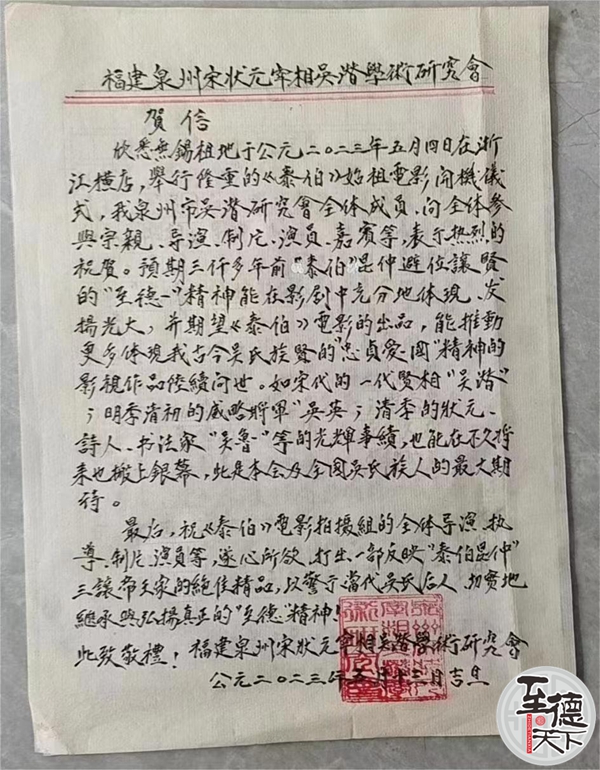 福建泉州宋狀元宰相吴潛學術研究會
賀信
欣悉無錫祖地于公元二0二三年五月四日在浙
江橫店，舉行隆重的《泰伯》始祖電影開機儀
式，我泉州市吴潛研究會全体成員、向全体參
與宗親、导演、制片、演員、嘉賓等，表示热烈的
祝賀。預期三仟多年前"泰伯"昆仲避位讓賢
的"至德一"精神能在影劇中充分地体現、发
揚光大，并期望《泰伯》電影的出品，能推動
更多体現我古今吴氏族賢的"忠貞爱國"精神的
影視作品陸續问世。如宋代的一代賢相"吴潛"
；明季清初的威略將軍"吴英"；清季的狀元、
詩人、书法家"吴魯"等的光輝事績，也能在不久将
来也搬上銀幕，此是本会及全國吴氏族人的最大期
待。
最后，祝《泰伯》電影拍攝組的全体导演、执
導、制片、演員等，遂心所欲，打出一部反映"泰伯昆仲"
三讓帝王家的絶佳精品，以警示當代吴氏后人，切實地
継承與弘揚真正的"至德"精神！
此致敬禮！福建泉州宋狀元宰相吴潛學術研究會
公元二0二三年五月十三日吉旦
至德天下